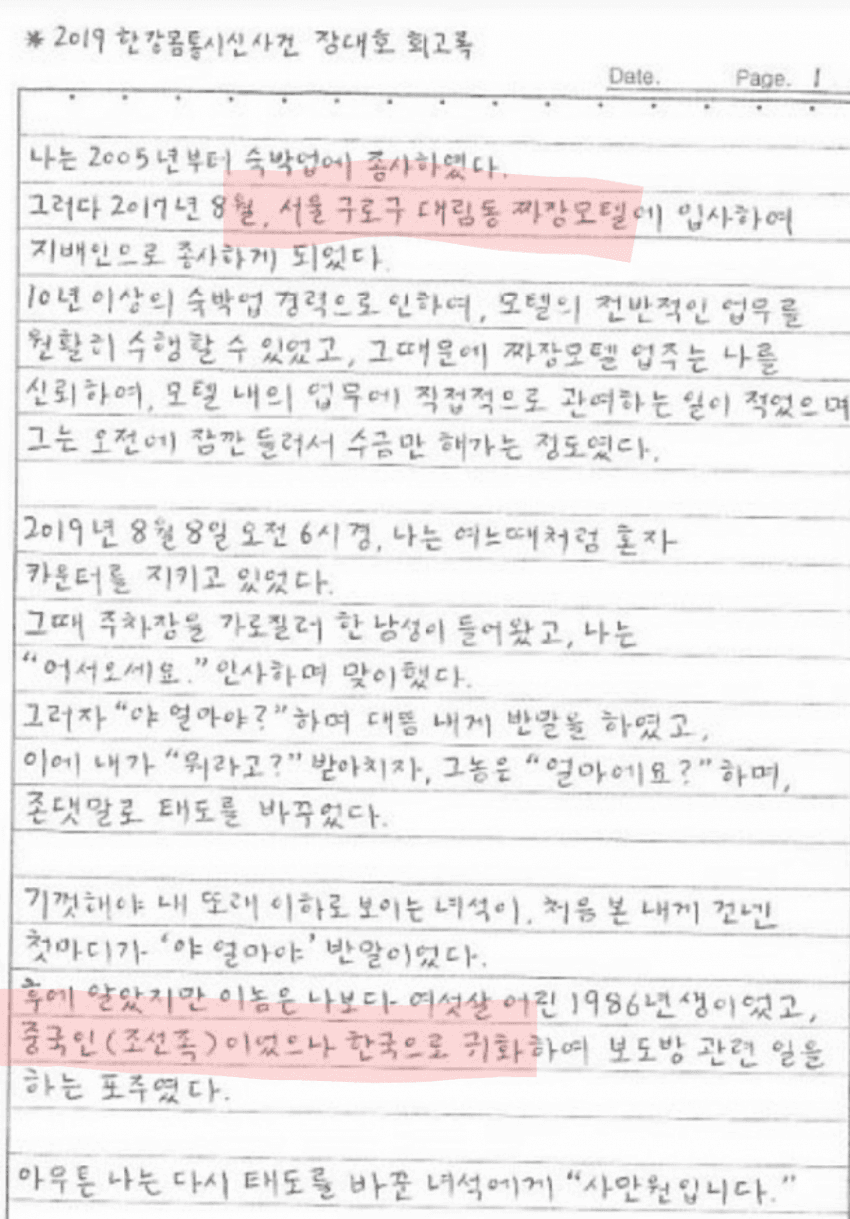 * 2019 한강몸통시신사건 장대호 회고록
Date. Page. 1
나는 2005년부터 숙박업에 종사하였다.
그러다 2017년 8월, 서울 구로구 대림동 짜장모텔에 입사하여
지배인으로 종사하게 되었다.
10년 이상의 숙박업 경력으로 인하여, 모텔의 전반적인 업무를
원활히 수행할 수 있었고, 그때문에 짜장모텔 업주는 나를
신뢰하여, 모텔 내의 업무에 직접적으로 관여하는 일이 적었으며
그는 오전에 잠깐 들러서 수금만 해가는 정도였다.
2019년 8월 8일 오전 6시경, 나는 여느때처럼 혼자
카운터를 지키고 있었다.
그때 주차장을 가로질러 한 남성이 들어왔고, 나는
"어서오세요." 인사하며 맞이했다.
그러자 "야 얼마야?" 하며 대뜸 내게 반말을 하였고,
이에 내가 "뭐라고?" 받아치자, 그놈은 "얼마에요?" 하며,
존댓말로 태도를 바꾸었다.
기껏해야 내 또래 이하로 보이는 녀석이, 처음 본 내게 건넨
첫마디가 '야 얼마야' 반말이었다.
후에 알았지만 이놈은 나보다 여섯살 어린 1986년생이었고,
중국인(조선족)이었으나 한국으로 귀화하여 보도방 관련 일을
하는 포주였다.
아무튼 나는 다시 태도를 바꾼 녀석에게 "사만원입니다."